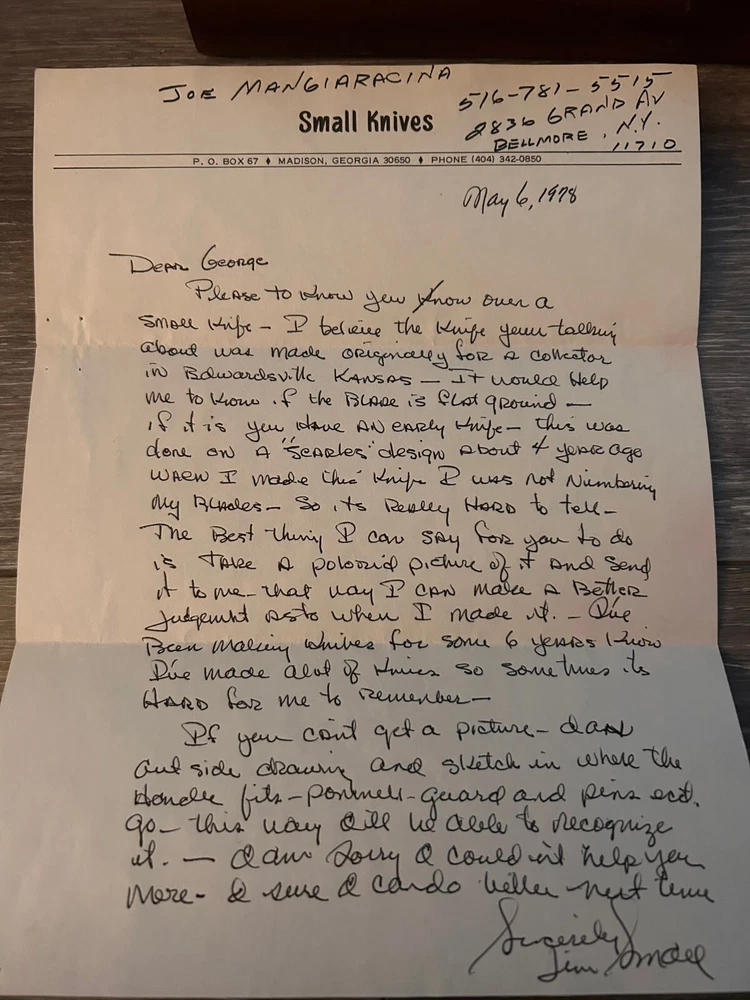 JOE MANGIARACINA
516-781-5515
2836 GRAND AV
BELLMORE, N.Y.
11710
Small Knives
P. O. BOX 67 ♦ MADISON, GEORGIA 30650 ♦ PHONE (404) 342-0850
May 6, 1978
Dear George
Please to know you know own a
small knife - I believe the knife your talking
about was made originally for a collector
in Edwardsville Kansas - It would help
me to know if the Blade is flat ground -
if it is you have an early knife - this was
done on a "Searles" design about 4 year ago
when I made this knife I was not Numbering
my Blades - So its Really HARD to tell -
The Best thing I can say for you to do
is TAKE A poloroid picture of it and send
it to me - that way I can make a Better
judgemnt as to when I made it. - I've
Been making knives for some 6 years know
I've made alot of knives so sometimes its
HARD for me to remember -
If you can't get a picture - draw
out side drawing and sketch in where the
Handle fits - pommel - guard and pins ect.
go - this way I'll be able to recognize
it. - I am sorry I could'nt help you
more - I sure I can do better next time
Sincerely
Jim Small